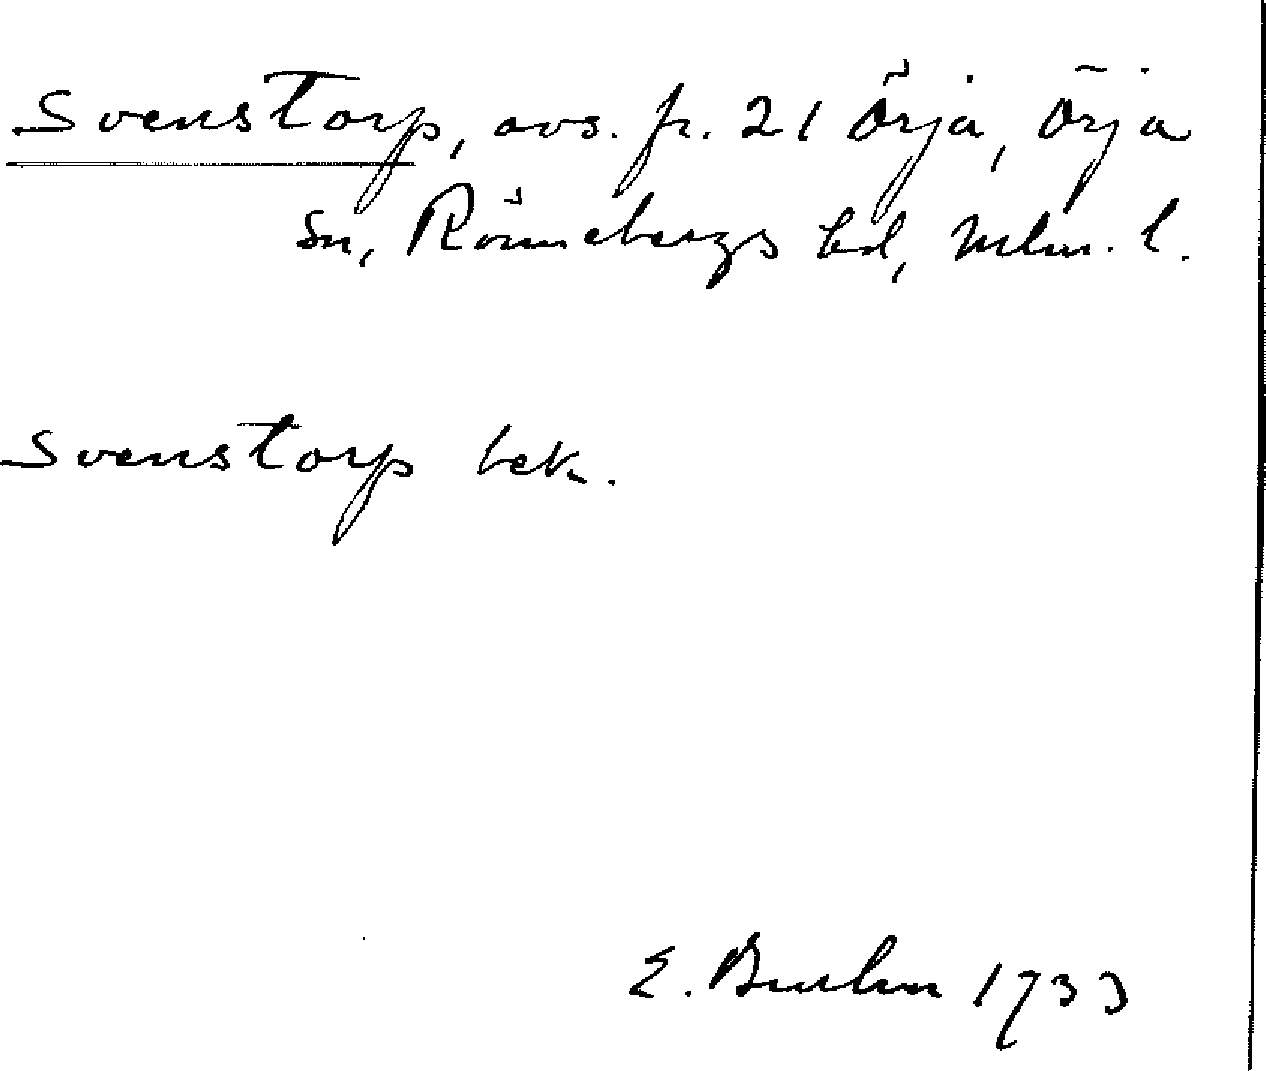 Svenstorp, avs. fr. 21 Örja, Örja
sn, Rönnebergs hd, Mlm. l.
Svenstorp bek.
E. 1933